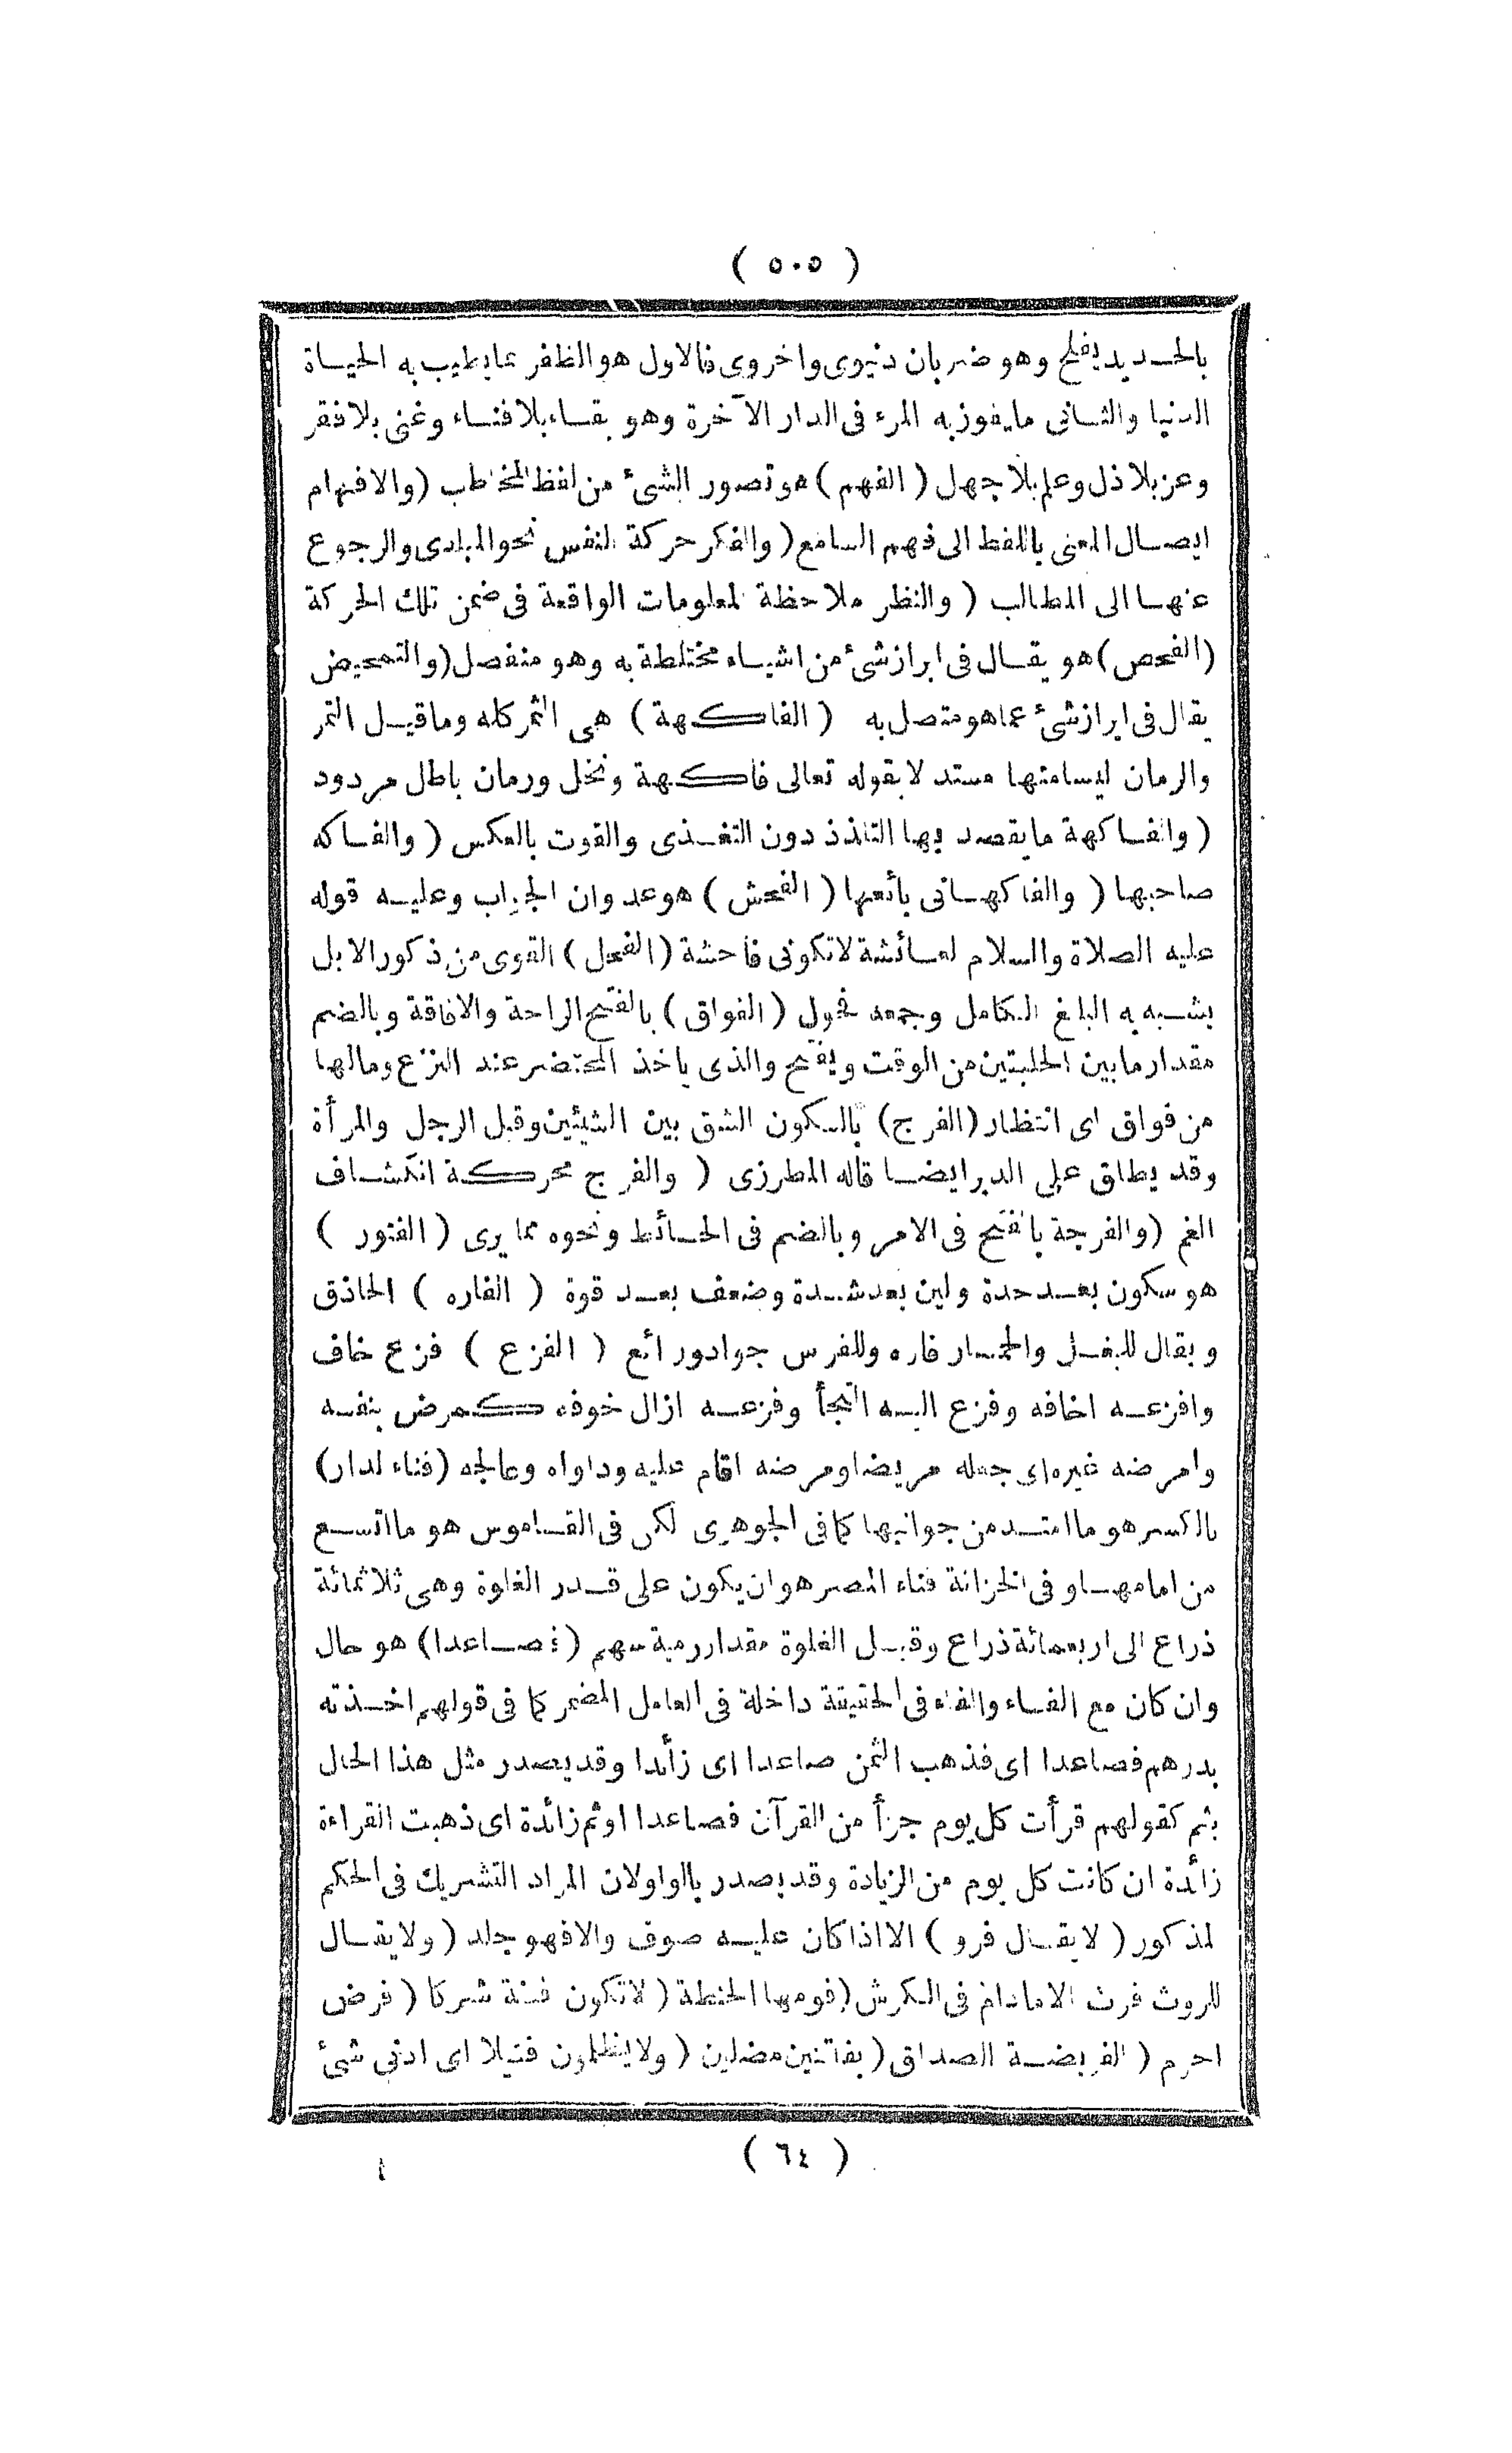 ( ٥٠٥ )
بالحديد يفلح وهو ضربان دنيوى واخروى فالاول هو الظفر بما يطيب به الحياة
الدنيا والثانى ما يفوز به المرء فى الدار الآخرة وهو بقاء بلا فناء وغنى بلا فقر
وعز بلا ذل وعلم بلا جهل ( الفهم ) هو تصور الشئ من لفظ المخاطب ( والافهام
ايصال المعنى باللفظ الى فهم السامع ( والفكر حركة النفس نحو المبادى والرجوع
عنها الى المطالب ( والنظر ملاحظة المعلومات الواقعة فى ضمن تلك الحركة
( الفحص ) هو يقال فى ابراز شئ من اشياء مختلطة به وهو منفصل ( والتمحيص
يقال فى ابراز شئ عما هو متصل به ( الفاكهة ) هى الثمر كله وما قيل التمر
والرمان ليسا منها مستدلا بقوله تعالى فاكهة ونخل ورمان باطل مردود
( والفاكهة ما يقصد بها التلذذ دون التغذى والقوت بالعكس ( والفاكه
صاحبها ( والفاكهانى بائعها ( الفحش ) هو عدوان الجواب وعليه قوله
عليه الصلاة والسلام لعائشة لا تكونى فاحشة ( الفحل ) القوى من ذكور الابل
يشبه به البلغ الكامل وجمعه فحول ( الفواق ) بالفتح الراحة والافاقة وبالضم
مقدار ما بين الحلبتين من الوقت ويفتح والذى ياخذ المحتضر عند النزع ومالها
من فواق اى انتظار ( الفرج ) بالسكون الشق بين الشيئين وقبل الرجل والمرأة
وقد يطلق على الدبر ايضا قاله المطرزى ( والفرج محركة انكشاف
الغم ( والفرجة بالفتح فى الامر وبالضم فى الحائط ونحوه مما يرى ( الفتور )
هو سكون بعد حدة ولين بعد شدة وضعف بعد قوة ( الفاره ) الحاذق
ويقال للبغل والحمار فاره وللفرس جواد ورائع ( الفزع ) فزع خاف
وافزعه اخافه وفزع اليه التجأ وفزعه ازال خوفه كمرض بنفسه
وامرضه غيره اى جعله مريضا ومرضه اقام عليه وداواه وعالجه ( فناء لدار )
بالكسر هو ما امتد من جوانبها كما فى الجوهرى لكن فى القاموس هو ما اتسع
من امامها وفى الخزانة فناء المصر هو ان يكون على قدر الغلوة وهى ثلاثمائة
ذراع الى اربعمائة ذراع وقيل الغلوة مقدار رمية سهم ( فصاعدا ) هو حال
وان كان مع الفاء والفاء فى الحقيقة داخلة فى العامل المضمر كما فى قولهم اخذته
بدرهم فصاعدا اى فذهب الثمن صاعدا اى زائدا وقد يصدر مثل هذا الحال
بثم كقولهم قرأت كل يوم جزأ من القرآن فصاعدا او ثم زائدة اى ذهبت القراءة
زائدة ان كانت كل يوم من الزيادة وقد يصدر بالواو لان المراد التشريك فى الحكم
لمذكور ( لا يقال فرو ) الا اذا كان عليه صوف والا فهو جلد ( ولا يقال
للروث فرث الا مادام فى الكرش ( فومها الحنطة ( لا تكون فتنة شركا ( فرض
احرم ( الفريضة الصداق ( بفاتنين مضلين ( ولا يظلمون فتيلا اى ادنى شئ
( ٦٤ )